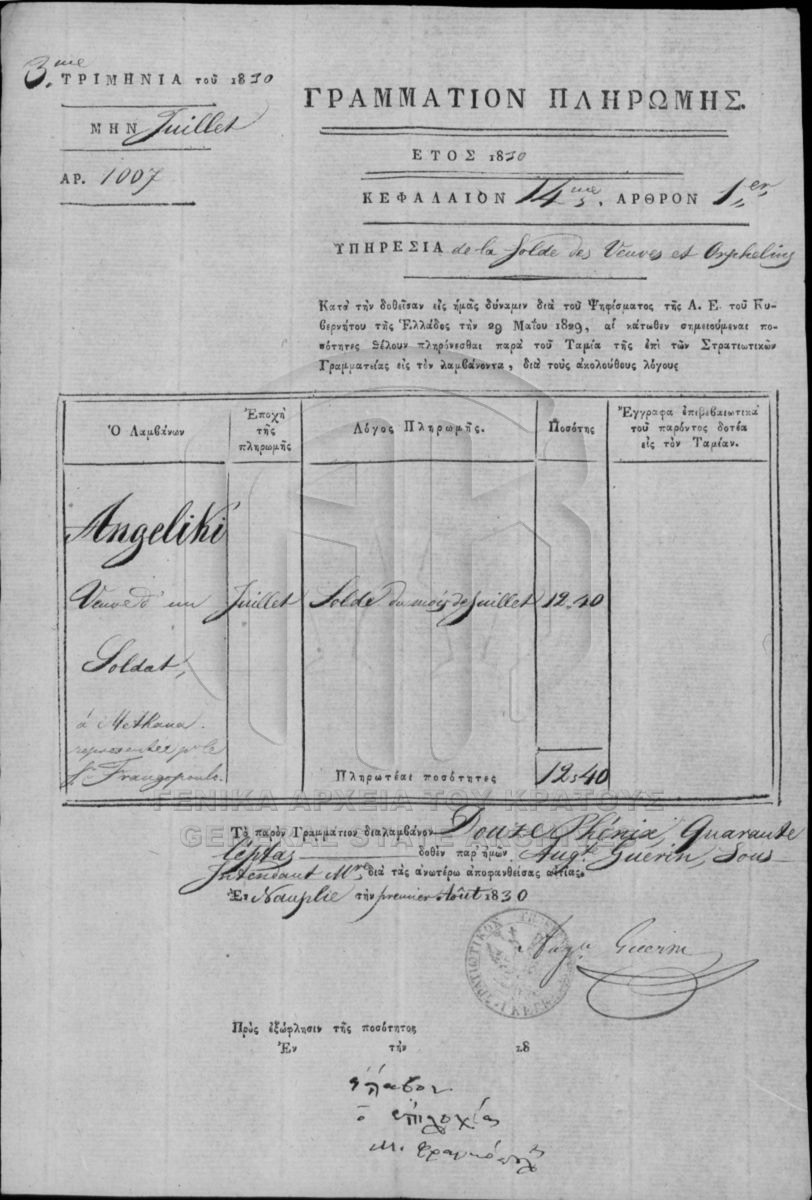 3.me ΤΡΙΜΗΝΙΑ τοῦ 1830
ΜΗΝ Juillet
ΑΡ. 1007
ΓΡΑΜΜΑΤΙΟΝ ΠΛΗΡΩΜΗΣ.
ΕΤΟΣ 1830
ΚΕΦΑΛΑΙΟΝ 14me, ΑΡΘΡΟΝ 1er
ΥΠΗΡΕΣΙΑ de la Solde des Veuves et Orphelins
Κατὰ τὴν δοθεῖσαν εἰς ἡμᾶς δύναμιν διὰ τοῦ Ψηφίσματος τῆς Α. Ε. τοῦ Κυ-
βερνήτου τῆς Ἑλλάδος τὴν 29 Μαΐου 1829, αἱ κάτωθεν σημειούμεναι πο-
σότητες θέλουν πληρόνεσθαι παρὰ τοῦ Ταμία τῆς ἐπὶ τῶν Στρατιωτικῶν
Γραμματείας εἰς τὸν λαμβάνοντα, διὰ τοὺς ἀκολούθους λόγους
Ὁ Λαμβάνων
Ἐποχὴ τῆς πληρωμῆς
Λόγος Πληρωμῆς.
Ποσότης
Ἔγγραφα ἐπιβεβαιωτικὰ
τοῦ παρόντος δοτέα
εἰς τὸν Ταμίαν.
Angeliki
Veuve d'un Juillet Solde du mois de Juillet 12,40
Soldat,
à Methana
representée p. le
Frangopoulo.
Πληρωτέαι ποσότητες 12,40
ΓΕΝΙΚΑ ΑΡΧΕΙΑ ΤΟΥ ΚΡΑΤΟΥΣ
GENERAL STATE ARCHIVES
Τὸ παρὸν Γραμμάτιον διαλαμβάνον Douze Phénix, Quarante
Leptas δοθὲν παρ' ἡμῶν Augt. Guerin, Sous-
Intendant Mre διὰ τὰς ἀνωτέρω ἀποφανθείσας αἰτίας.
Ἐν Nauplie τὴν premier Août 1830
Augte Guerin
Πρὸς ἐξώφλησιν τῆς ποσότητος
Ἐν τὴν 18
ἔλαβον
ὁ ἐπιλοχίας